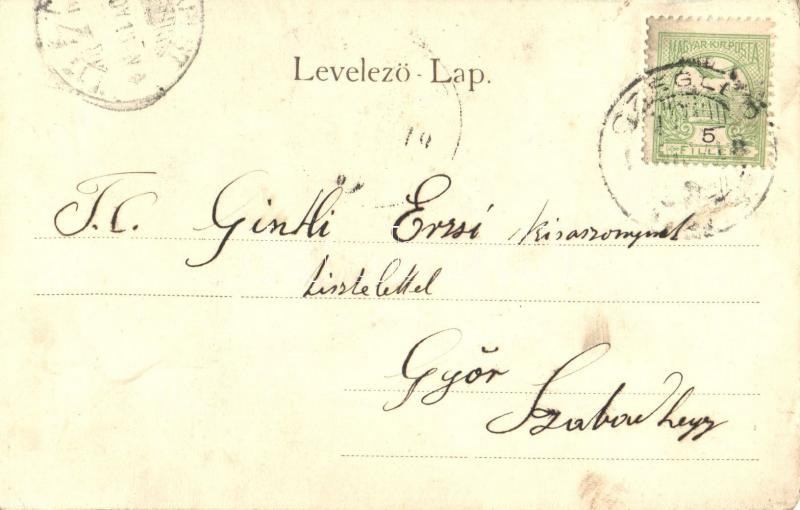 Levelező Lap.
MAGYAR·KIR·POSTA
5
FILLÉR
CZEGLÉD
T. C. Gintli Erzsi kisasszonynak
tisztelettel
Győr
Szabadhegy